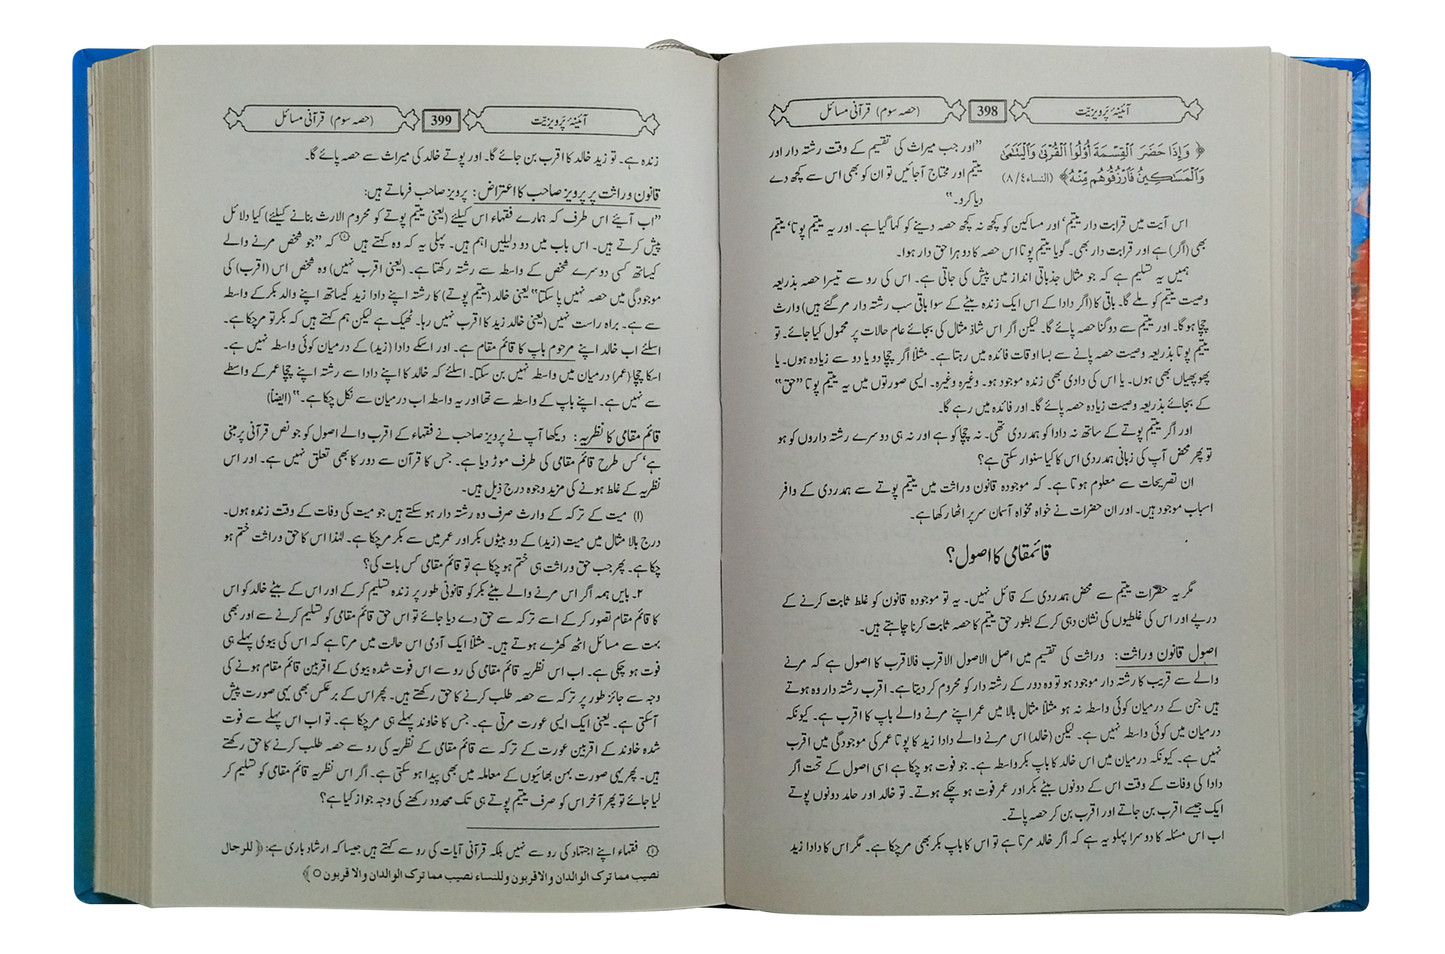 آئینۂ پرویزیت 398 (حصہ سوم) قرآنی مسائل
﴿ وَإِذَا حَضَرَ ٱلْقِسْمَةَ أُوْلُوا۟ ٱلْقُرْبَىٰ وَٱلْيَتَٰمَىٰ
وَٱلْمَسَٰكِينُ فَٱرْزُقُوهُم مِّنْهُ﴾ (النساء۸/٤)
”اور جب میراث کی تقسیم کے وقت رشتہ دار اور
یتیم اور محتاج آجائیں تو ان کو بھی اس سے کچھ دے
دیا کرو۔“
اس آیت میں قرابت دار یتیم‘ اور مساکین کو کچھ نہ کچھ حصہ دینے کو کہا گیا ہے۔ اور یہ یتیم پوتا‘ یتیم
بھی (اگر) ہے اور قرابت دار بھی۔ گویا یتیم پوتا اس حصہ کا دوہرا حق دار ہوا۔
ہمیں یہ تسلیم ہے کہ جو مثال جذباتی انداز میں پیش کی جاتی ہے۔ اس کی رو سے تیسرا حصہ بذریعہ
وصیت یتیم کو ملے گا۔ باقی کا (اگر دادا کے اس ایک زندہ بیٹے کے سوا باقی سب رشتہ دار مر گئے ہیں) وارث
چچا ہو گا۔ اور یتیم سے دوگنا حصہ پائے گا۔ لیکن اگر اس شاذ مثال کی بجائے عام حالات پر محمول کیا جائے۔ تو
یتیم پوتا بذریعہ وصیت حصہ پانے سے بسا اوقات فائدہ میں رہتا ہے۔ مثلاً اگر چچا دو یا دو سے زیادہ ہوں۔ یا
پھوپھیاں بھی ہوں۔ یا اس کی دادی بھی زندہ موجود ہو۔ وغیرہ وغیرہ۔ ایسی صورتوں میں یہ یتیم پوتا ”حق“
کے بجائے بذریعہ وصیت زیادہ حصہ پائے گا۔ اور فائدہ میں رہے گا۔
اور اگر یتیم پوتے کے ساتھ نہ دادا کو ہمدردی تھی۔ نہ چچا کو ہے اور نہ ہی دوسرے رشتہ داروں کو ہو
تو پھر محض آپ کی زبانی ہمدردی اس کا کیا سنوار سکتی ہے؟
ان تصریحات سے معلوم ہوتا ہے۔ کہ موجودہ قانون وراثت میں یتیم پوتے سے ہمدردی کے وافر
اسباب موجود ہیں۔ اور ان حضرات نے خواہ مخواہ آسمان سر پر اٹھا رکھا ہے۔
قائمقامی کا اصول؟
مگر یہ حضرات یتیم سے محض ہمدردی کے قائل نہیں۔ یہ تو موجودہ قانون کو غلط ثابت کرنے کے
درپے اور اس کی غلطیوں کی نشان دہی کر کے بطور حق یتیم کا حصہ ثابت کرنا چاہتے ہیں۔
اصول قانون وراثت: وراثت کی تقسیم میں اصل الاصول الاقرب فالاقرب کا اصول ہے کہ مرنے
والے سے قریب کا رشتہ دار موجود ہو تو وہ دور کے رشتہ دار کو محروم کر دیتا ہے۔ اقرب رشتہ دار وہ ہوتے
ہیں جن کے درمیان کوئی واسطہ نہ ہو مثلاً مثال بالا میں عمر اپنے مرنے والے باپ کا اقرب ہے۔ کیونکہ
درمیان میں کوئی واسطہ نہیں ہے۔ لیکن (خالد) اس مرنے والے دادا زید کا پوتا عمر کی موجودگی میں اقرب
نہیں ہے۔ کیونکہ درمیان میں اس خالد کا باپ بکر واسطہ ہے۔ جو فوت ہو چکا ہے اسی اصول کے تحت اگر
دادا کی وفات کے وقت اس کے دونوں بیٹے بکر اور عمر فوت ہو چکے ہوتے۔ تو خالد اور حامد دونوں پوتے
ایک جیسے اقرب بن جاتے اور اقرب بن کر حصہ پاتے۔
اب اس مسئلہ کا دوسرا پہلو یہ ہے کہ اگر خالد مرتا ہے تو اس کا باپ بکر بھی مر چکا ہے۔ مگر اس کا دادا زید
آئینۂ پرویزیت 399 (حصہ سوم) قرآنی مسائل
زندہ ہے۔ تو زید خالد کا اقرب بن جائے گا۔ اور پوتے خالد کی میراث سے حصہ پائے گا۔
قانون وراثت پر پرویز صاحب کا اعتراض: پرویز صاحب فرماتے ہیں:
”اب آیئے اس طرف کہ ہمارے فقہاء اس کیلئے (یعنی یتیم پوتے کو محروم الارث بنانے کیلئے) کیا دلائل
پیش کرتے ہیں۔ اس باب میں دو دلیلیں اہم ہیں۔ پہلی یہ کہ وہ کہتے ہیں ① کہ ”جو شخص مرنے والے
کیساتھ کسی دوسرے شخص کے واسطہ سے رشتہ رکھتا ہے۔ (یعنی اقرب نہیں) وہ شخص اس (اقرب) کی
موجودگی میں حصہ نہیں پا سکتا“ یعنی خالد (یتیم پوتے) کا رشتہ اپنے دادا زید کیساتھ اپنے والد بکر کے واسطہ
سے ہے۔ براہ راست نہیں (یعنی خالد زید کا اقرب نہیں رہا۔ ٹھیک ہے لیکن ہم کہتے ہیں کہ بکر تو مر چکا ہے۔
اسلئے اب خالد اپنے مرحوم باپ کا قائم مقام ہے۔ اور اسکے دادا (زید) کے درمیان کوئی واسطہ نہیں ہے۔
اسکا چچا (عمر) درمیان میں واسطہ نہیں بن سکتا۔ اسلئے کہ خالد کا اپنے دادا سے رشتہ اپنے چچا عمر کے واسطے
سے نہیں ہے۔ اپنے باپ کے واسطہ سے تھا اور یہ واسطہ اب درمیان سے نکل چکا ہے۔“ (ایضاً)
قائم مقامی کا نظریہ: دیکھا آپ نے پرویز صاحب نے فقہاء کے اقرب والے اصول کو جو نص قرآنی پر مبنی
ہے‘ کس طرح قائم مقامی کی طرف موڑ دیا ہے۔ جس کا قرآن سے دور کا بھی تعلق نہیں ہے۔ اور اس
نظریہ کے غلط ہونے کی مزید وجوہ درج ذیل ہیں۔
(۱) میت کے ترکہ کے وارث صرف وہ رشتہ دار ہو سکتے ہیں جو میت کی وفات کے وقت زندہ ہوں۔
درج بالا مثال میں میت (زید) کے دو بیٹوں بکر اور عمر میں سے بکر مر چکا ہے۔ لہٰذا اس کا حق وراثت ختم ہو
چکا ہے۔ پھر جب حق وراثت ہی ختم ہو چکا ہے تو قائم مقامی کس بات کی؟
۲۔ بایں ہمہ اگر اس مرنے والے بیٹے بکر کو قانونی طور پر زندہ تسلیم کر کے اور اس کے بیٹے خالد کو اس
کا قائم مقام تصور کر کے اسے ترکہ سے حق دے دیا جائے تو اس حق قائم مقامی کو تسلیم کرنے سے اور بھی
بہت سے مسائل اٹھ کھڑے ہوتے ہیں۔ مثلاً ایک آدمی اس حالت میں مرتا ہے کہ اس کی بیوی پہلے ہی
فوت ہو چکی ہے۔ اب اس نظریہ قائم مقامی کی رو سے اس فوت شدہ بیوی کے اقربین قائم مقام ہونے کی
وجہ سے جائز طور پر ترکہ سے حصہ طلب کرنے کا حق رکھتے ہیں۔ پھر اس کے برعکس بھی یہی صورت پیش
آسکتی ہے۔ یعنی ایک ایسی عورت مرتی ہے۔ جس کا خاوند پہلے ہی مر چکا ہے۔ تو اب اس پہلے سے فوت
شدہ خاوند کے اقربین عورت کے ترکہ سے قائم مقامی کے نظریہ کی رو سے حصہ طلب کرنے کا حق رکھتے
ہیں۔ پھر یہی صورت بہن بھائیوں کے معاملہ میں بھی پیدا ہو سکتی ہے۔ اگر اس نظریہ قائم مقامی کو تسلیم کر
لیا جائے تو پھر آخر اس کو صرف یتیم پوتے ہی تک محدود رکھنے کی وجہ جواز کیا ہے؟
① فقہاء اپنے اجتہاد کی رو سے نہیں بلکہ قرآنی آیات کی رو سے کہتے ہیں جیسا کہ ارشاد باری ہے: ﴿ للرجال
نصیب مما ترک الوالدان والاقربون وللنساء نصیب مما ترک الوالدان والاقربون ○ ﴾